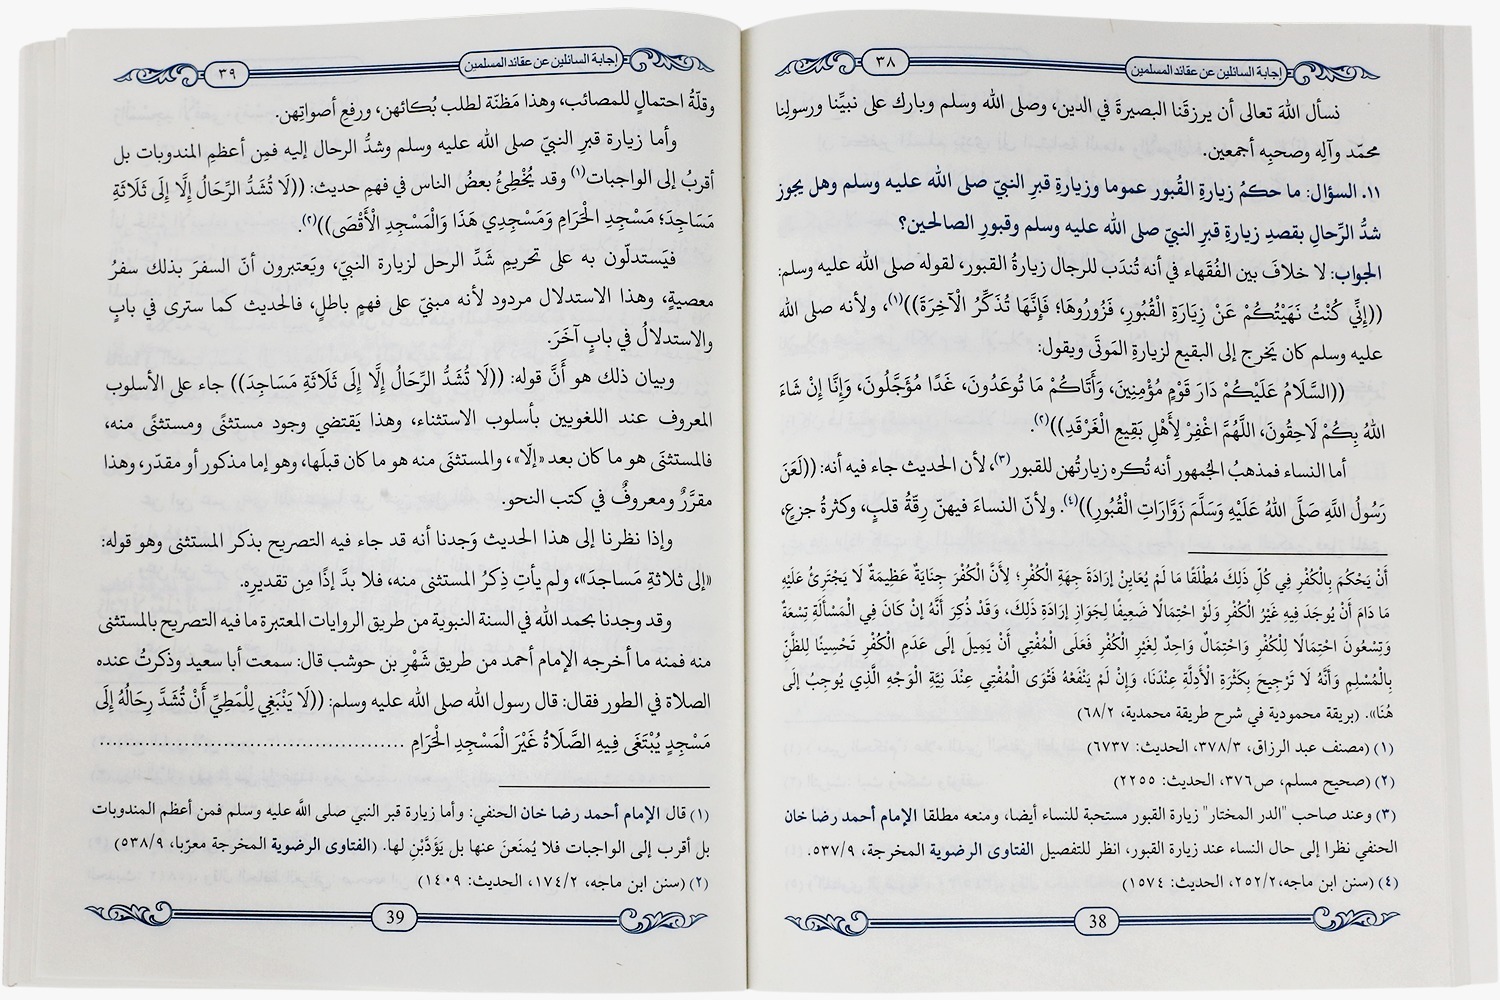 إجابة السائلين عن عقائد المسلمين
٣٨
نسأل اللهَ تعالى أن يرزقَنا البصيرةَ في الدين، وصلى الله وسلم وبارك على نبيِّنا ورسولِنا
محمّد وآلِه وصحبِه أجمعين.
١١. السؤال: ما حكمُ زيارةِ القُبور عموما وزيارةِ قبرِ النبيّ صلى الله عليه وسلم وهل يجوز
شدُّ الرِّحالِ بقصدِ زيارةِ قبرِ النبيّ صلى الله عليه وسلم وقبورِ الصالحين؟
الجواب: لا خلافَ بين الفُقهاء في أنه تُندَب للرجال زيارةُ القبور، لقوله صلى الله عليه وسلم:
((إِنِّي كُنْتُ نَهَيْتُكُمْ عَنْ زِيَارَةِ الْقُبُورِ، فَزُورُوهَا؛ فَإِنَّهَا تُذَكِّرُ الْآخِرَةَ))(١)، ولأنه صلى الله
عليه وسلم كان يَخرج إلى البقيع لزيارةِ المَوتَى ويقول:
((السَّلَامُ عَلَيْكُمْ دَارَ قَوْمٍ مُؤْمِنِينَ، وَأَتَاكُمْ مَا تُوعَدُونَ، غَدًا مُؤَجَّلُونَ، وَإِنَّا إِنْ شَاءَ
اللهُ بِكُمْ لَاحِقُونَ، اللَّهُمَّ اغْفِرْ لِأَهْلِ بَقِيعِ الْغَرْقَدِ))(٢).
أما النساء فمذهبُ الجُمهور أنه تُكره زيارتُهن للقبور(٣)، لأن الحديث جاء فيه أنه: ((لَعَنَ
رَسُولُ اللَّهِ صَلَّى اللهُ عَلَيْهِ وَسَلَّمَ زَوَّارَاتِ الْقُبُورِ))(٤). ولأنّ النساءَ فيهنّ رِقّةُ قلبٍ، وكثرةُ جزعٍ،
أَنْ يَحْكُمَ بِالْكُفْرِ فِي كُلِّ ذَلِكَ مُطْلَقًا مَا لَمْ يُعَايِنْ إِرَادَةَ جِهَةِ الْكُفْرِ؛ لِأَنَّ الْكُفْرَ جِنَايَةٌ عَظِيمَةٌ لَا يَجْتَرِئُ عَلَيْهِ
مَا دَامَ أَنْ يُوجَدَ فِيهِ غَيْرُ الْكُفْرِ وَلَوْ احْتِمَالًا ضَعِيفًا لِجَوَازِ إِرَادَةِ ذَلِكَ، وَقَدْ ذُكِرَ أَنَّهُ إِنْ كَانَ فِي الْمَسْأَلَةِ تِسْعَةٌ
وَتِسْعُونَ احْتِمَالًا لِلْكُفْرِ وَاحْتِمَالٌ وَاحِدٌ لِغَيْرِ الْكُفْرِ فَعَلَى الْمُفْتِي أَنْ يَمِيلَ إِلَى عَدَمِ الْكُفْرِ تَحْسِينًا لِلظَّنِّ
بِالْمُسْلِمِ وَأَنَّهُ لَا تَرْجِيحَ بِكَثْرَةِ الْأَدِلَّةِ عِنْدَنَا، وَإِنْ لَمْ يَنْفَعْهُ فَتْوَى الْمُفْتِي عِنْدَ نِيَّةِ الْوَجْهِ الَّذِي يُوجِبُ إِلَى
هُنَا». (بريقة محمودية في شرح طريقة محمدية، ٦٨/٢)
(١) (مصنف عبد الرزاق، ٣٧٨/٣، الحديث: ٦٧٣٧)
(٢) (صحيح مسلم، ص٣٧٦، الحديث: ٢٢٥٥)
(٣) وعند صاحب "الدر المختار" زيارة القبور مستحبة للنساء أيضا، ومنعه مطلقا الإمام أحمد رضا خان
الحنفي نظرا إلى حال النساء عند زيارة القبور، انظر للتفصيل الفتاوى الرضوية المخرجة، ٥٣٧/٩.
(٤) (سنن ابن ماجه، ٢٥٢/٢، الحديث: ١٥٧٤)
38
إجابة السائلين عن عقائد المسلمين
٣٩
وقلّةُ احتمالٍ للمصائب، وهذا مَظنّة لطلب بُكائهن، ورفعِ أصواتِهن.
وأما زيارة قبرِ النبيّ صلى الله عليه وسلم وشدُّ الرحال إليه فمِن أعظمِ المندوبات بل
أقربُ إلى الواجبات(١) وقد يُخْطِئُ بعضُ الناس في فهمِ حديث: ((لَا تُشَدُّ الرِّحَالُ إِلَّا إِلَى ثَلَاثَةِ
مَسَاجِدَ؛ مَسْجِدِ الْحَرَامِ وَمَسْجِدِي هَذَا وَالْمَسْجِدِ الْأَقْصَى))(٢).
فيَستدلّون به على تحريمِ شَدِّ الرحل لزيارة النبيّ، ويَعتبرون أنّ السفرَ بذلك سفرُ
معصيةٍ، وهذا الاستدلال مردود لأنه مبنيّ على فهمٍ باطلٍ، فالحديث كما سترى في بابٍ
والاستدلالُ في بابٍ آخَرَ.
وبيان ذلك هو أَنَّ قوله: ((لَا تُشَدُّ الرِّحَالُ إِلَّا إِلَى ثَلَاثَةِ مَسَاجِدَ)) جاء على الأسلوب
المعروف عند اللغويين بأسلوب الاستثناء، وهذا يَقتضي وجود مستثنًى ومستثنًى منه،
فالمستثنَى هو ما كان بعد «إلّا»، والمستثنَى منه هو ما كان قبلَها، وهو إما مذكور أو مقدّر، وهذا
مقرَّرٌ ومعروفٌ في كتب النحو.
وإذا نظرنا إلى هذا الحديث وَجدنا أنه قد جاء فيه التصريح بذكر المستثنى وهو قوله:
«إلى ثلاثةِ مَساجدَ»، ولم يأتِ ذِكرُ المستثنى منه، فلا بدَّ إذًا مِن تقديرِه.
وقد وجدنا بحمد الله في السنة النبوية من طريق الروايات المعتبرة ما فيه التصريح بالمستثنى
منه فمنه ما أخرجه الإمام أحمد من طريق شَهْرِ بن حوشب قال: سمعت أبا سعيد وذكرتُ عنده
الصلاة في الطور فقال: قال رسول الله صلى الله عليه وسلم: ((لَا يَنْبَغِي لِلْمَطِيِّ أَنْ تُشَدَّ رِحَالُهُ إِلَى
مَسْجِدٍ يُبْتَغَى فِيهِ الصَّلَاةُ غَيْرَ الْمَسْجِدِ الْحَرَامِ ............................................
(١) قال الإمام أحمد رضا خان الحنفي: وأما زيارة قبر النبي صلى الله عليه وسلم فمن أعظم المندوبات
بل أقرب إلى الواجبات فلا يُمنَعنَ عنها بل يَؤَدَّبْنِ لها. (الفتاوى الرضوية المخرجة معرّبا، ٥٣٨/٩)
(٢) (سنن ابن ماجه، ١٧٤/٢، الحديث: ١٤٠٩)
39